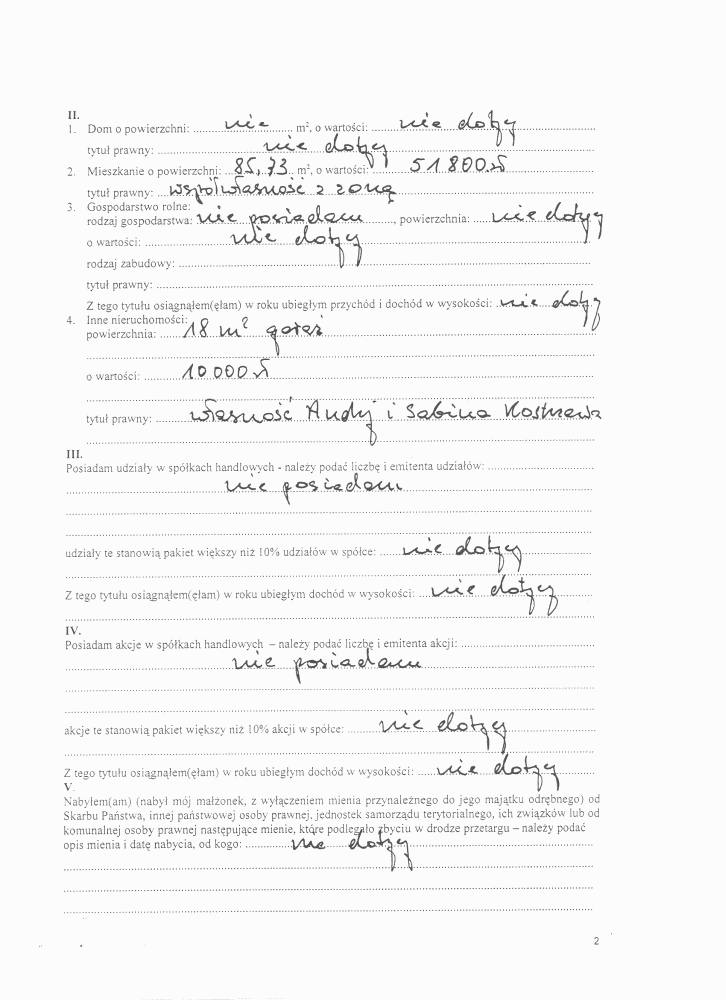 II.
1. Dom o powierzchni: nie m², o wartości: nie dotyczy
tytuł prawny: nie dotyczy
2. Mieszkanie o powierzchni: 85,73 m², o wartości: 51 800 zł
tytuł prawny: współwłasność z żoną
3. Gospodarstwo rolne:
rodzaj gospodarstwa: nie posiadam, powierzchnia: nie dotyczy
o wartości: nie dotyczy
rodzaj zabudowy:
tytuł prawny:
Z tego tytułu osiągnąłem(ęłam) w roku ubiegłym przychód i dochód w wysokości: nie dotyczy
4. Inne nieruchomości:
powierzchnia: 18 m² garaż
o wartości: 10 000 zł
tytuł prawny: własność Andy i Sabina Kostrzewa
III.
Posiadam udziały w spółkach handlowych - należy podać liczbę i emitenta udziałów:
nie posiadam
udziały te stanowią pakiet większy niż 10% udziałów w spółce: nie dotyczy
Z tego tytułu osiągnąłem(ęłam) w roku ubiegłym dochód w wysokości: nie dotyczy
IV.
Posiadam akcje w spółkach handlowych – należy podać liczbę i emitenta akcji:
nie posiadam
akcje te stanowią pakiet większy niż 10% akcji w spółce: nie dotyczy
Z tego tytułu osiągnąłem(ęłam) w roku ubiegłym dochód w wysokości: nie dotyczy
V.
Nabyłem(am) (nabył mój małżonek, z wyłączeniem mienia przynależnego do jego majątku odrębnego) od
Skarbu Państwa, innej państwowej osoby prawnej, jednostek samorządu terytorialnego, ich związków lub od
komunalnej osoby prawnej następujące mienie, które podlegało zbyciu w drodze przetargu – należy podać
opis mienia i datę nabycia, od kogo: nie dotyczy
2